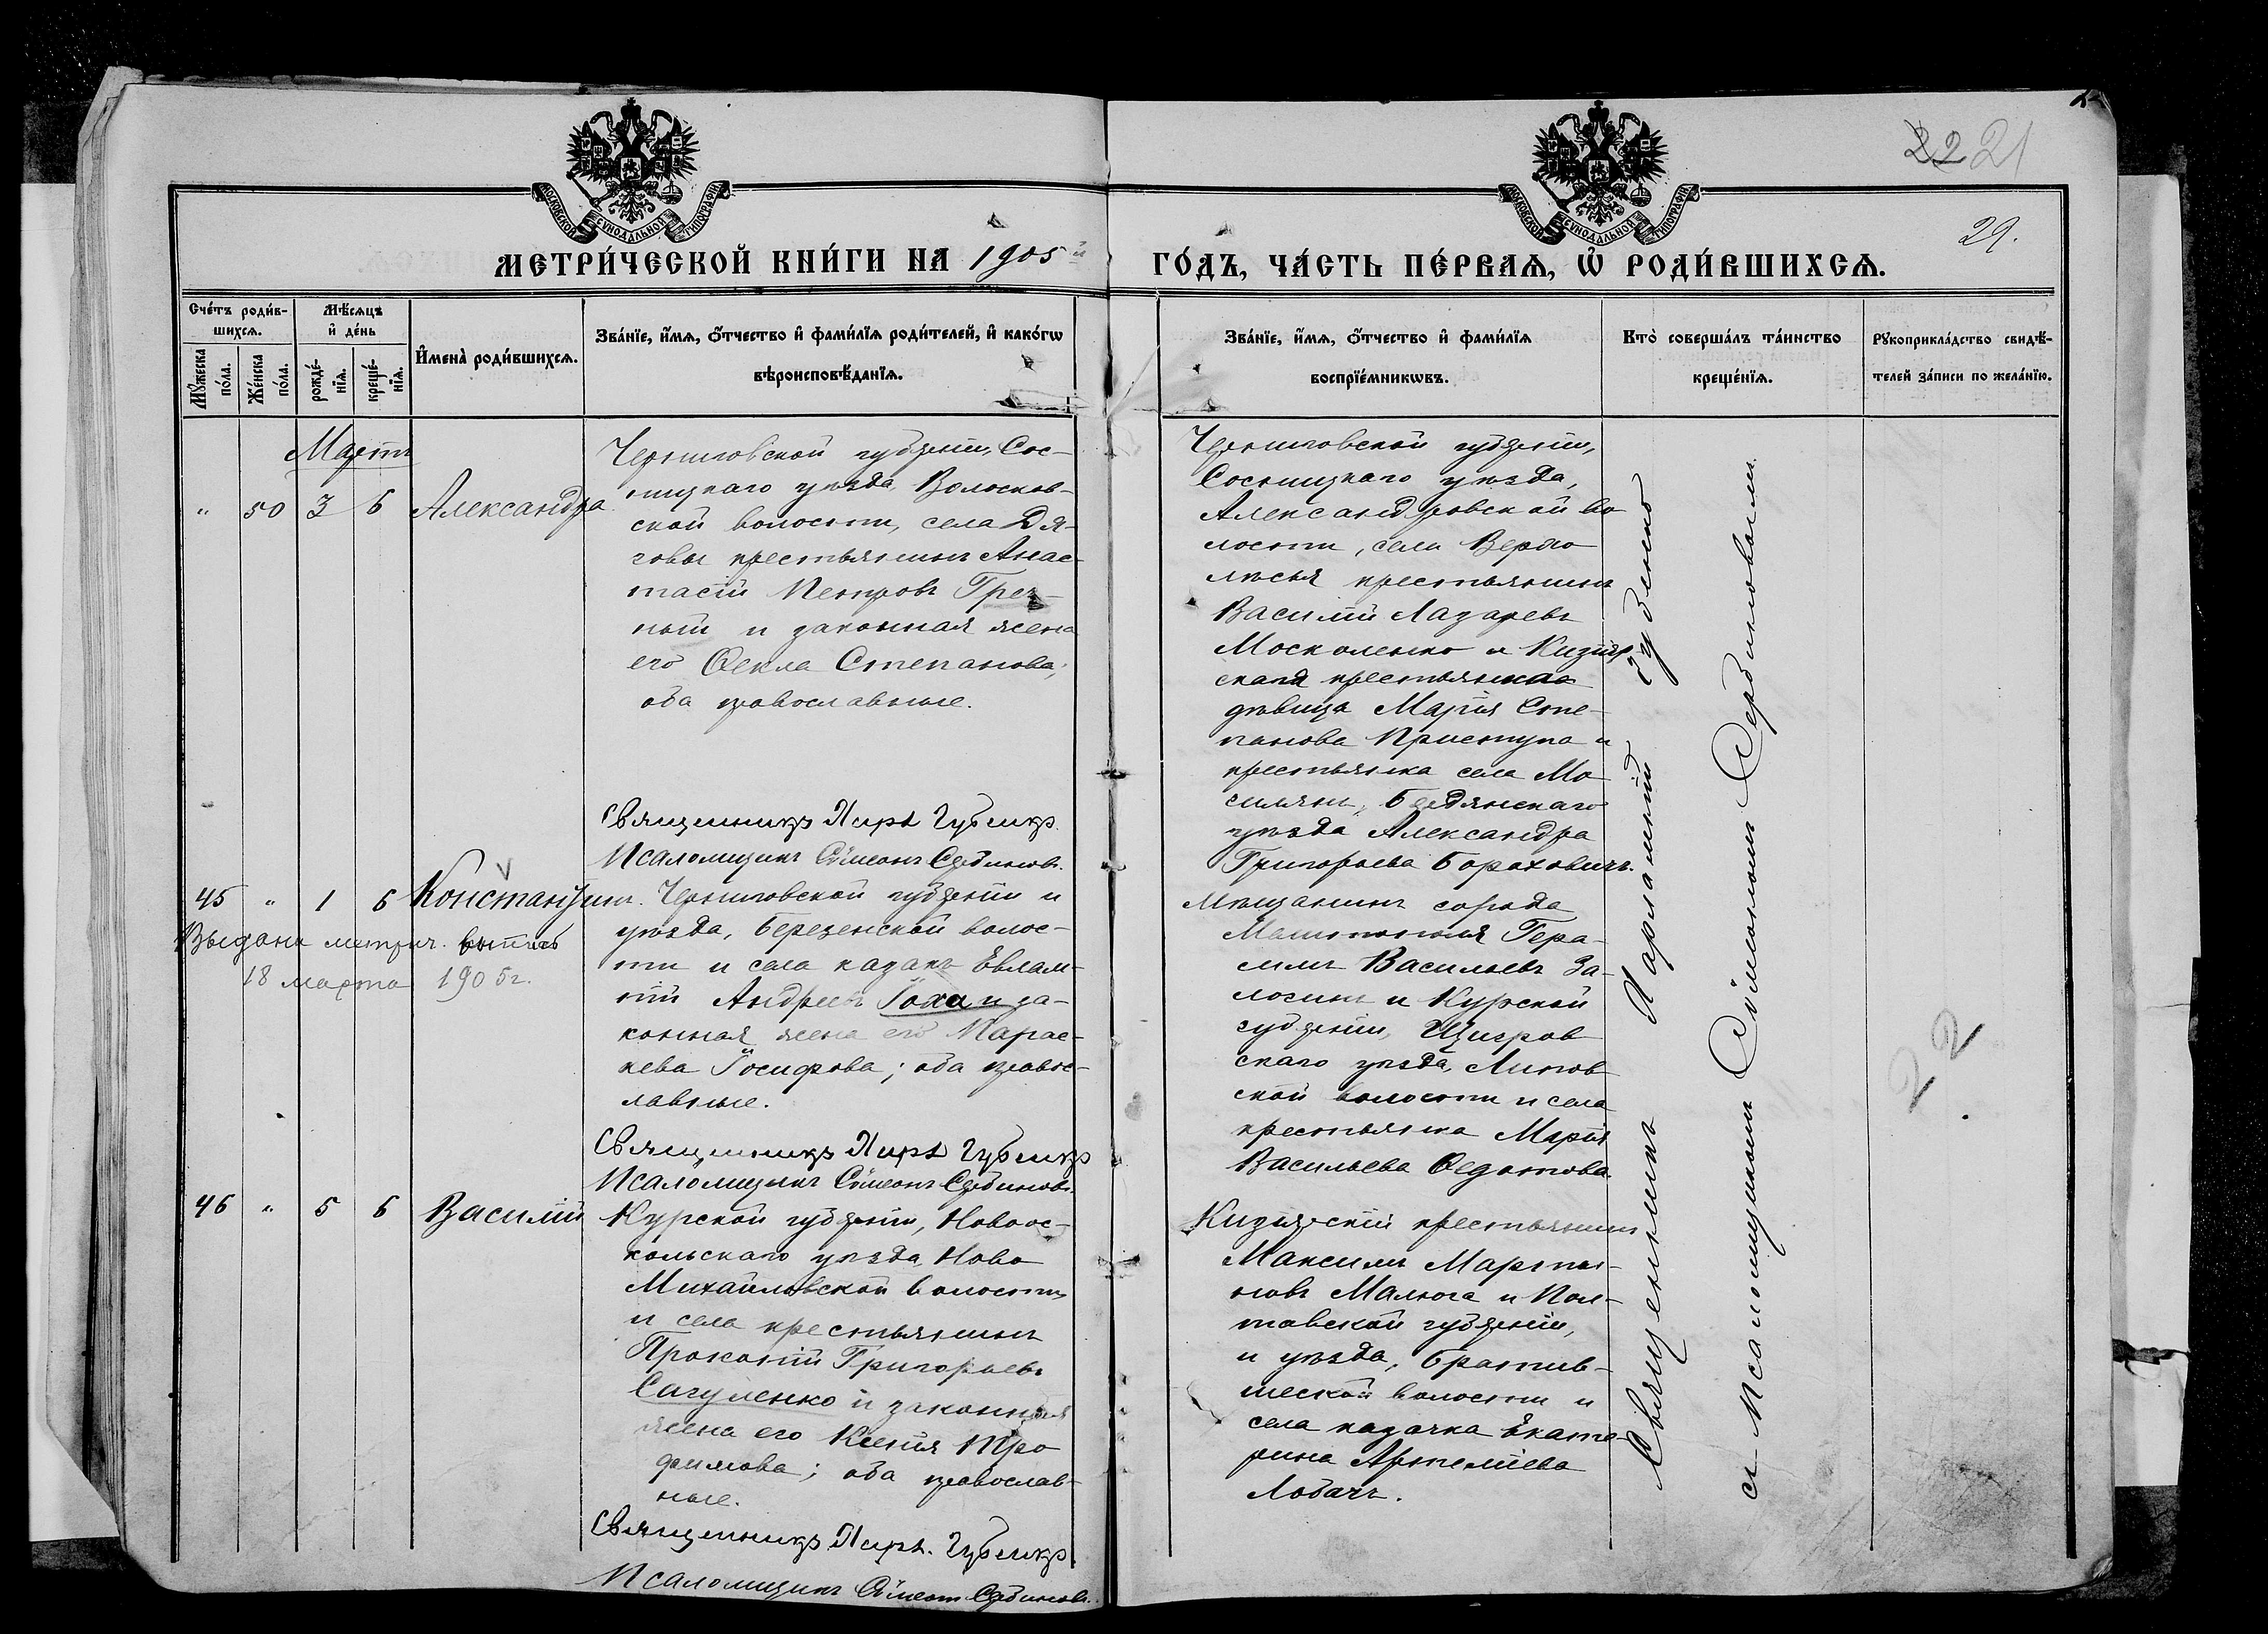 22 21
29.
МОСКОВСКОЙ СУНОДАЛЬНОЙ ТИПОГРАФІИ
МОСКОВСКОЙ СУНОДАЛЬНОЙ ТИПОГРАФІИ
МЕТРИ́ЧЕСКОЙ КНИ́ГИ НА 1905й
ГО́ДЪ, ЧА́СТЬ ПЕ́РВАѦ, Ѡ РОДИ́ВШИХСѦ.
Сче́тъ роди́в-
шихсѧ.
Мꙋжеска по́ла.
Же́нска по́ла.
Мѣ́сѧцъ
и҆ де́нь
рожде́-нїѧ.
креще́-нїѧ.
И҆мена̀ роди́вшихсѧ.
Зва́нїе, и҆́мѧ, ѻ҆́тчество и҆ фами́лїѧ роди́телей, и҆ како́гѡ
вѣроисповѣ́данїѧ.
Зва́нїе, и҆́мѧ, ѻ҆́тчество и҆ фами́лїѧ
воспрїе́мникѡвъ.
Кто̀ соверша́лъ та́инство
креще́нїѧ.
Рꙋкоприкла́дство свидѣ́-
телей за́писи по жела́нїю.
Мартъ
" 50 3 6 Александра
Черниговской губерніи, Сос-
ницкаго уѣзда, Волосков-
ской волости, села Дя-
говы крестьянинъ Анас-
тасій Петровъ Греч-
ный и законная жена
его Ѳекла Степанова;
оба православные.
Священникъ Харл. Губенко
Псаломщикъ Сѵмеонъ Сербиновъ.
Черниговской губерніи,
Сосницкаго уѣзда,
Александровской во
лости, села Верхо
лѣсья крестьянинъ
Василій Лазаревъ
Москаленко и Кизіяр
ская крестьянская
дѣвица Марія Сте-
панова Приступа и
крестьянка села Мо
, Бердянскаго
уѣзда Александра
Григорьева Борахович.
45 " 1 6 Константинъ.
Выдана метрич. выпись
18 марта 1905г.
Черниговской губерніи и
уѣзда, Березенской волос-
ти и села казакъ Евлам-
пій Андреевъ Гоха и за-
конная жена его Парас-
кева Іосифова; оба правос-
лавные.
Священникъ Харл. Губенко
Псаломщикъ Сѵмеонъ Сербиновъ.
Мѣщанинъ города
Мелитополя Гера-
симъ Васильевъ За-
логинъ и Курской
губерніи, Щигров
скаго уѣзда, Липов
ской волости и села
крестьянка Марія
Васильева Ѳедотова.
46 " 5 6 Василій
Курской губерніи, Новоос-
кольскаго уѣзда, Ново
Михайловской волости
и села крестьянинъ
Прокопій Григорьевъ
Сагуленко и законная
жена его Ксенія Тро
фимова; оба православ-
ные.
Священникъ Харл. Губенко
Псаломщикъ Сѵмеонъ Сербиновъ.
Кизіярскій крестьянинъ
Максимъ Марты-
новъ Малюга и Пол-
тавской губерніи,
и уѣзда, Братеш-
ческой волости и
села казачка Екате-
рина Артеміева
Лобачъ.
Священникъ Харлампій Губенко
съ Псаломщикомъ Сѵмеономъ Сербиновымъ.
22